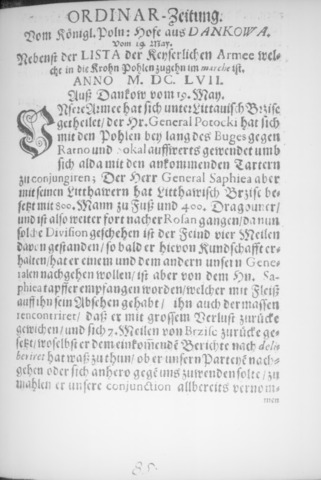 ORDINAR-Zeitung.
Vom Königl. Poln: Hofe aus DANKOWA.
Vom 19. May.
Nebenst der LISTA der Keyserlichen Armee wel-
che in die Krohn Pohlen zugehn im marche ist.
ANNO M. DC. LVII.
Auß Dankow vom 19. May.
Unsere Armee hat sich unter Littauisch Brzisc
getheilet/ der Hr. General Potocki hat sich
mit den Pohlen bey lang des Buges gegen
Ratno und Sokal auffwerts gewendet umb
sich alda mit den ankommenden Tartern
zu conjungiren; Der Herr General Saphiea aber
mit seinen Litthawern hat Litthawisch Brzisc be-
setzt mit 800. Mann zu Fuß und 400. Dragouner/
und ist also weiter fort nacher Rosan gangen/ da nun
solche Division geschehen ist der Feind vier Meilen
davon gestanden/ so bald er hievon Kundschafft er-
halten/ hat er einem und dem andern unsern Gene-
ralen nachgehen wollen/ ist aber von dem Hn. Sa-
phiea tapffer empfangen worden/ welcher mit Fleiß
auff ihn sein Absehen gehabt/ ihn auch dermassen
rencontriret/ daß er mit grossem Verlust zurücke
gewichen/ und sich 7. Meilen von Brzisc zurücke ge-
setzt/ woselbst er dem einkommenē Berichte nach delu-
beriret hat waß zu thun/ ob er unsern Parteyē nach-
gehen oder sich anhero gegē uns zuwenden solte/ zu-
mahlen er unsere conjunction allbereits vernom-
men